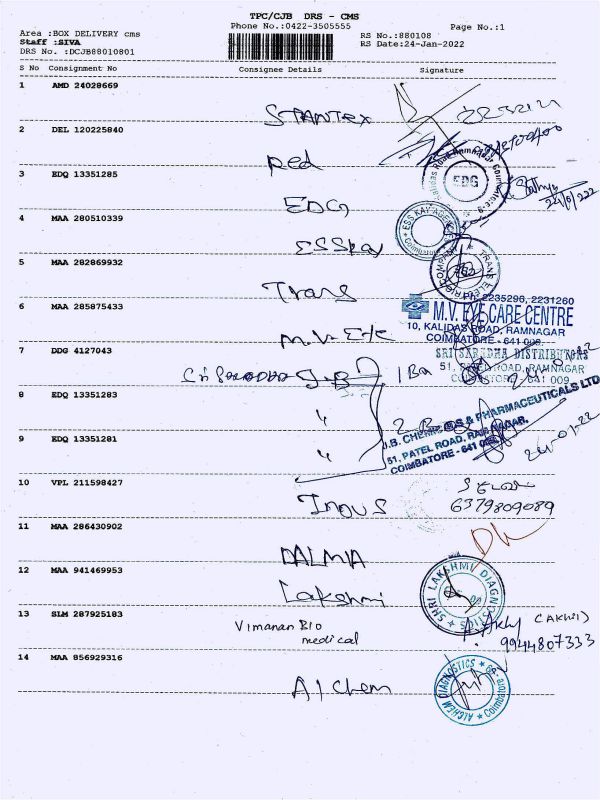 TPC/CJB DRS - CMS
Phone No.:0422-3505555
Page No.:1
Area :BOX DELIVERY cms
Staff :SIVA
DRS No. :DCJB88010801
RS No.:880108
RS Date:24-Jan-2022
S No Consignment No Consignee Details Signature
1 AMD 24028669
STANTEX
2 DEL 120225840
Red
3 EDQ 13351285
EDG
EDG
4 MAA 280510339
ESSKay
ESS KAY AGENCIES
5 MAA 282869932
Trans
6 MAA 285875433
M.V. EYE
PH: 2235296, 2231260
M.V. EYE CARE CENTRE
10, KALIDAS ROAD, RAMNAGAR
COIMBATORE - 641 009.
7 DDG 4127043
SRI SARADHA DISTRIBUTORS
51, PATEL ROAD, RAMNAGAR
COIMBATORE - 641 009
8 EDQ 13351283
"
J.B. CHEMICALS & PHARMACEUTICALS LTD
51, PATEL ROAD, RAM NAGAR,
COIMBATORE - 641 009
9 EDQ 13351281
"
24-01-22
10 VPL 211598427
6379809089
11 MAA 286430902
DALMIA
12 MAA 941469953
Lakshmi
SHRI LAKSHMI DIAGNOSTICS
13 SLM 287925183
Vimanan BIO
medical
9944807333
14 MAA 856929316
Alchem
ALCHEM DIAGNOSTICS
Coimbatore